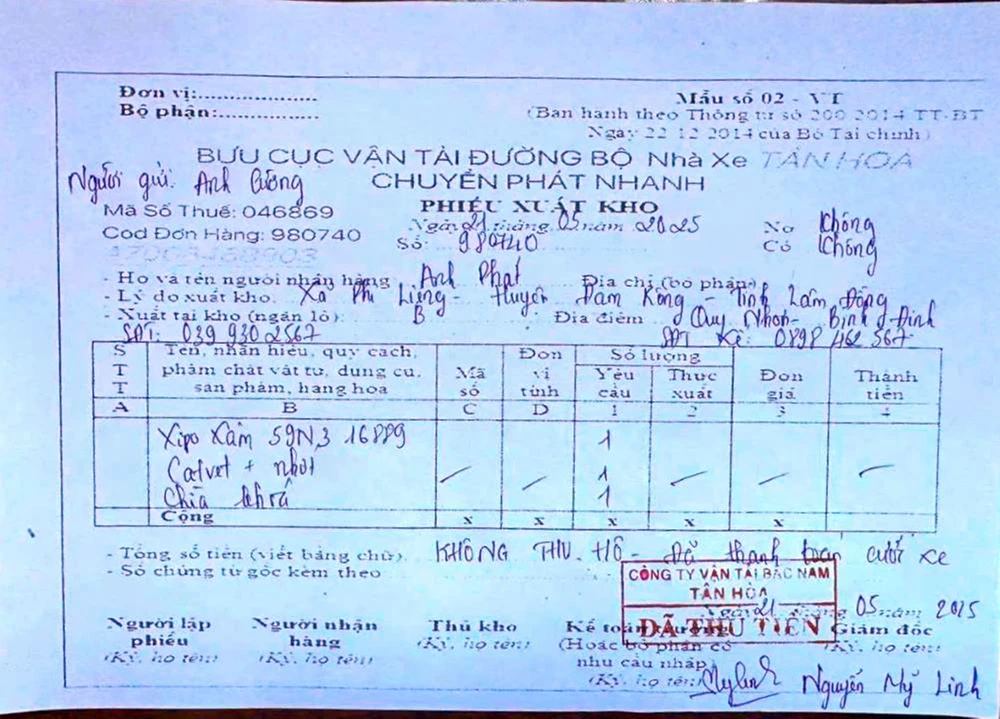 Đơn vị:....................
Bộ phận:.................
Mẫu số 02 - VT
(Ban hành theo Thông tư số 200 2014 TT-BT
Ngày 22 12 2014 của Bộ Tài chính)
BƯU CỤC VẬN TẢI ĐƯỜNG BỘ Nhà Xe TÂN HOA
Người gửi. Anh Cương
CHUYỂN PHÁT NHANH
PHIẾU XUẤT KHO
Mã Số Thuế: 046869
Ngày 21 tháng 05 năm 2025
Nợ Không
Cod Đơn Hàng: 980740
Số: 980740
Có Không
- Họ và tên người nhận hàng Anh Phát Địa chỉ (bộ phận)
- Lý do xuất kho. Xã Phi Liêng - Huyện Đam Rông - Tỉnh Lâm Đồng
- Xuất tại kho (ngăn lô) B Địa điểm Quy Nhơn - Bình Định
SĐT: 039 930 2567 SĐT Xe: 0898 462 567
STT Tên, nhãn hiệu, quy cách, phẩm chất vật tư, dụng cụ, sản phẩm, hàng hoá Mã số Đơn vị tính Số lượng Yêu cầu Thực xuất Đơn giá Thành tiền
A B C D 1 2 3 4
Xipo Xám 59N3 16889 1
Catvet + nhớt 1
Chìa khoá 1
Cộng x x x x x
- Tổng số tiền (viết bằng chữ). KHÔNG THU HỘ - Đã thanh toán cước xe
- Số chứng từ gốc kèm theo
CÔNG TY VẬN TẢI BẮC NAM
TÂN HOA
ĐÃ THU TIỀN
Ngày 21 tháng 05 năm 2025
Người lập phiếu
(Ký, họ tên)
Người nhận hàng
(Ký, họ tên)
Thủ kho
(Ký, họ tên)
Kế toán trưởng
(Hoặc bộ phận có nhu cầu nhập)
(Ký, họ tên)
Giám đốc
(Ký, họ tên)
Mylinh Nguyễn Mỹ Linh